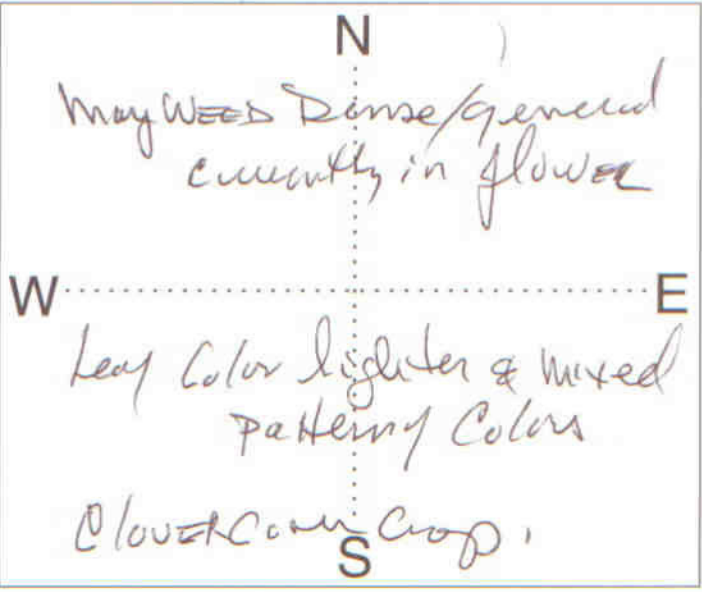 N
May WEED Dense/general
currently in flower
W E
Leaf Color lighter & mixed
pattern of Colors
Clover Cover Crop.
S